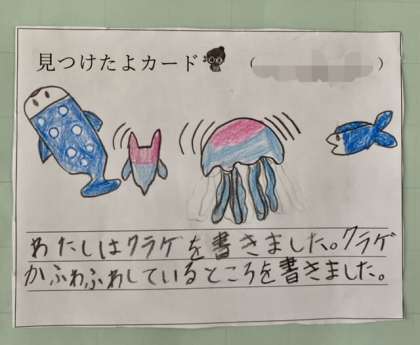 見つけたよカード ( )
わたしはクラゲを書きました。クラゲ
がふわふわしているところを書きました。